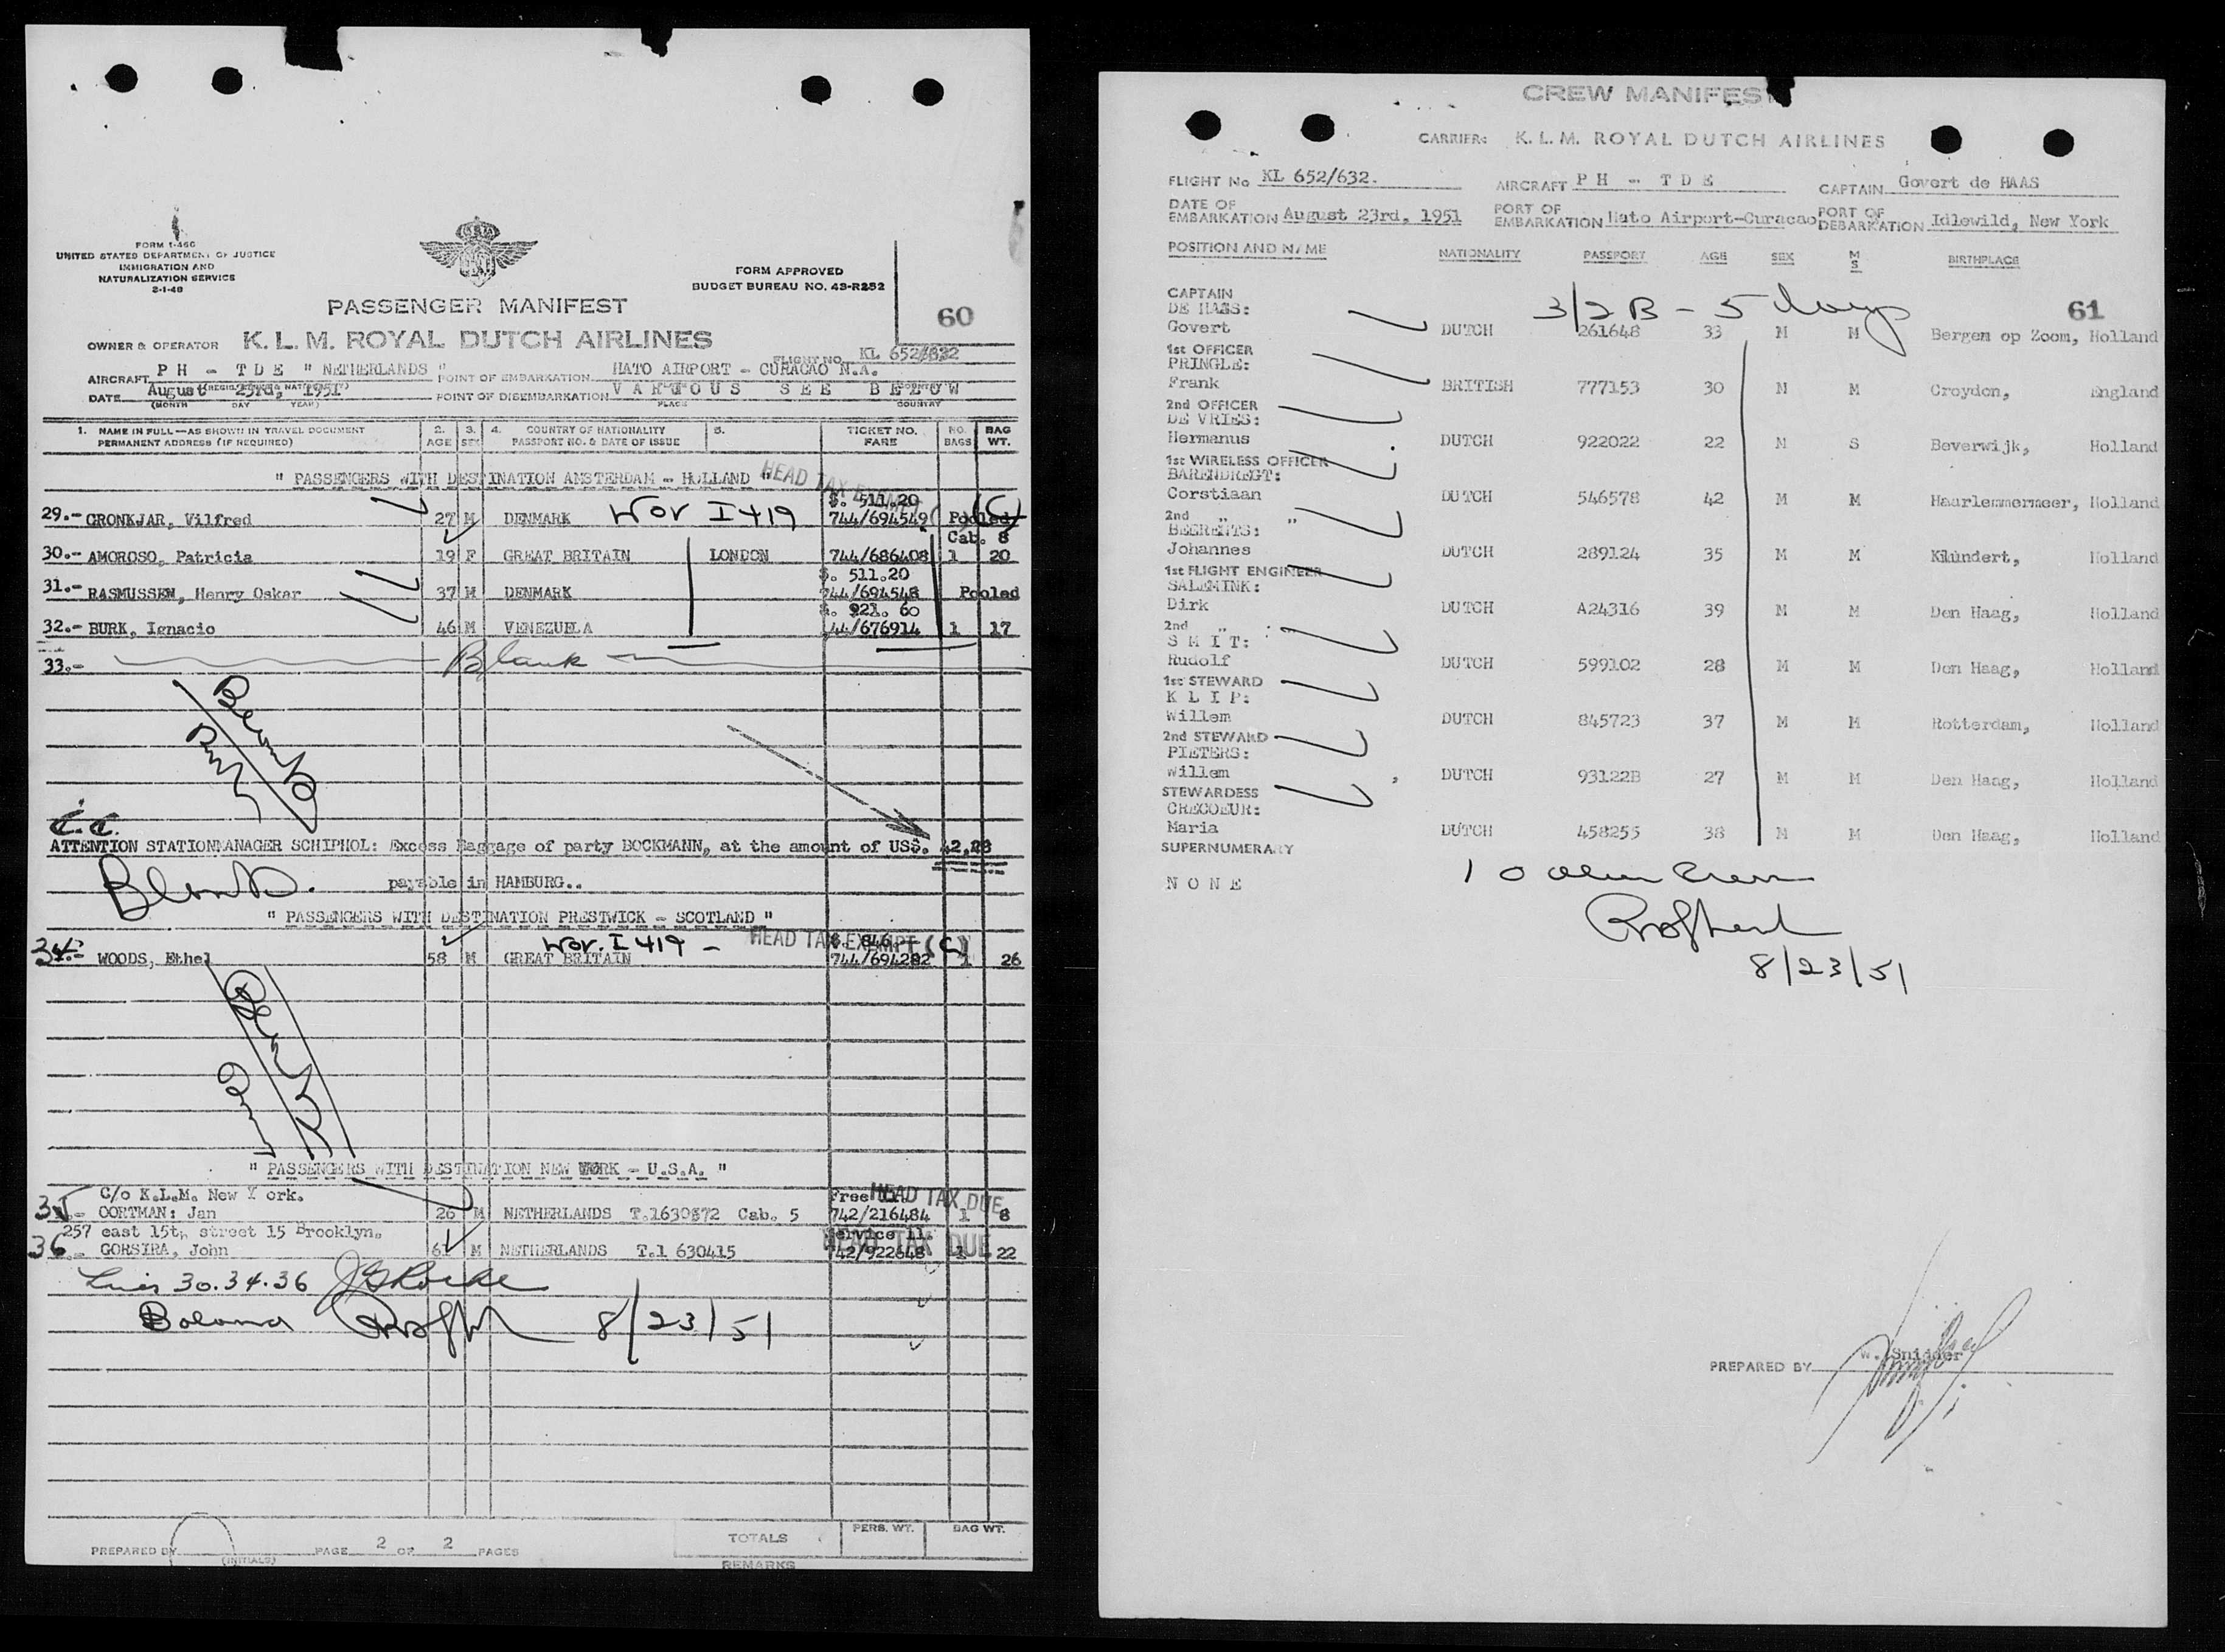 FORM I-466
UNITED STATES DEPARTMENT OF JUSTICE
IMMIGRATION AND
NATURALIZATION SERVICE
2-1-48
FORM APPROVED
BUDGET BUREAU NO. 43-R252
PASSENGER MANIFEST
60
OWNER & OPERATOR K. L. M. ROYAL DUTCH AIRLINES
FLIGHT NO. KL 652/632
AIRCRAFT P H - T D E " NETHERLANDS " POINT OF EMBARKATION HATO AIRPORT - CURACAO N.A.
DATE August 23rd, 1951 POINT OF DISEMBARKATION VARIOUS SEE BELOW
(MONTH DAY YEAR) PLACE COUNTRY
1. NAME IN FULL—AS SHOWN IN TRAVEL DOCUMENT 2. 3. 4. COUNTRY OF NATIONALITY 5. TICKET NO. NO. BAG
PERMANENT ADDRESS (IF REQUIRED) AGE SEX PASSPORT NO. & DATE OF ISSUE FARE BAGS WT.
" PASSENGERS WITH DESTINATION AMSTERDAM - HOLLAND " HEAD TAX EXEMPT
$. 511.20
29.- GRONKJAR, Vilfred 27 M DENMARK Wov I 419 744/694549 Pooled (C)
Cab. 8
30.- AMOROSO, Patricia 19 F GREAT BRITAIN LONDON 744/686408 1 20
$. 511.20
31.- RASMUSSEN, Henry Oskar 37 M DENMARK 744/694548 Pooled
$. 921. 60
32.- BURK, Ignacio 46 M VENEZUELA 744/676914 1 17
33.- Blank
Blank
C.C.
ATTENTION STATIONMANAGER SCHIPHOL: Excess Baggage of party BOCKMANN, at the amount of US$. 42,28
Blank. payable in HAMBURG..
" PASSENGERS WITH DESTINATION PRESTWICK - SCOTLAND "
Wov. I 419 - HEAD TAX EXEMPT (C)
34.- WOODS, Ethel 58 M GREAT BRITAIN 744/694282 1 26
Blank
" PASSENGERS WITH DESTINATION NEW YORK - U.S.A. "
C/o K.L.M. New York. Free HEAD TAX DUE
35.- OORTMAN: Jan 26 M NETHERLANDS T.1630572 Cab. 5 742/216484 1 8
257 east 15th street 15 Brooklyn. Service HEAD TAX DUE
36.- GORSIRA, John 61 M NETHERLANDS T.1 630415 742/922648 1 22
Lines 30.34.36
8/23/51
PERS. WT. BAG WT.
TOTALS
PREPARED BY (INITIALS) PAGE 2 OF 2 PAGES
REMARKS
CREW MANIFEST
CARRIER: K. L. M. ROYAL DUTCH AIRLINES
FLIGHT No KL 652/632. AIRCRAFT P H - T D E CAPTAIN Govert de HAAS
DATE OF EMBARKATION August 23rd, 1951 PORT OF EMBARKATION Hato Airport-Curacao PORT OF DEBARKATION Idlewild, New York
POSITION AND NAME NATIONALITY PASSPORT AGE SEX M S BIRTHPLACE
3/2 B - 5 days 61
CAPTAIN
DE HAAS:
Govert DUTCH 261648 33 M M Bergen op Zoom, Holland
1st OFFICER
PRINGLE:
Frank BRITISH 777153 30 M M Croydon, England
2nd OFFICER
DE VRIES:
Hermanus DUTCH 922022 22 M S Beverwijk, Holland
1st WIRELESS OFFICER
BARENDREGT:
Corstiaan DUTCH 546578 42 M M Haarlemmermeer, Holland
2nd " "
BEERENTS:
Johannes DUTCH 289124 35 M M Klundert, Holland
1st FLIGHT ENGINEER
SALEMINK:
Dirk DUTCH A24316 39 M M Den Haag, Holland
2nd " :
S M I T:
Rudolf DUTCH 599102 28 M M Den Haag, Holland
1st STEWARD
K L I P:
Willem DUTCH 845723 37 M M Rotterdam, Holland
2nd STEWARD
PIETERS:
Willem DUTCH 93122B 27 M M Den Haag, Holland
STEWARDESS
CRECOEUR:
Maria DUTCH 458255 38 M M Den Haag, Holland
SUPERNUMERARY
N O N E
10 alien Crew
8/23/51
PREPARED BY W. Snijder